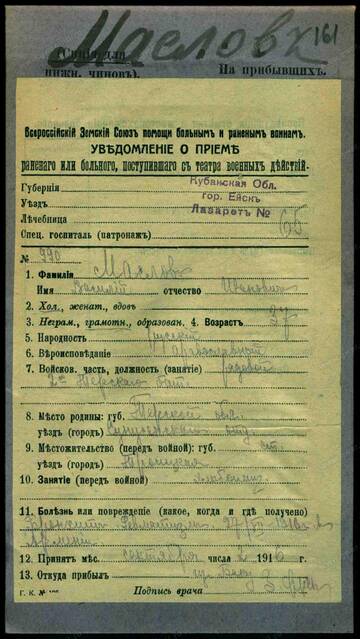 Масловъ 161
(Синiя для
нижн. чиновъ). На прибывшихъ.
Всероссiйскiй Земскiй Союзъ помощи больнымъ и раненымъ воинамъ.
УВѢДОМЛЕНIЕ О ПРIЕМѢ
раненаго или больного, поступившаго съ театра военныхъ дѣйствiй.
Губернiя Кубанская Обл.
Уѣздъ гор. Ейскъ
Лѣчебница Лазаретъ № 65
Спец. госпиталь (патронажъ)
№ 990
1. Фамилiя Масловъ
Имя Василiй отчество Ивановичъ
2. Хол., женат., вдовъ
3. Неграм., грамотн., образован. 4. Возрастъ 37
5. Народность русскiй
6. Вѣроисповѣданiе православный
7. Войсков. часть, должность (званiе) рядовой
2го Терскаго бат.
8. Мѣсто родины: губ. Терской обл.
уѣздъ (городъ) Сунженскаго отд.
9. Мѣстожительство (передъ войной): губ. ст.
уѣздъ (городъ) Троицкая
10. Занятiе (передъ войной) хлѣбопаш.
11. Болѣзнь или поврежденiе (какое, когда и гдѣ получено)
Бронхитъ Ревматизмъ 27/VII 1916 г. въ
Армени
12. Принятъ мѣс. сентября числа 2 1916 г.
13. Откуда прибылъ изъ Баку
Г. К. № 106 Подпись врача